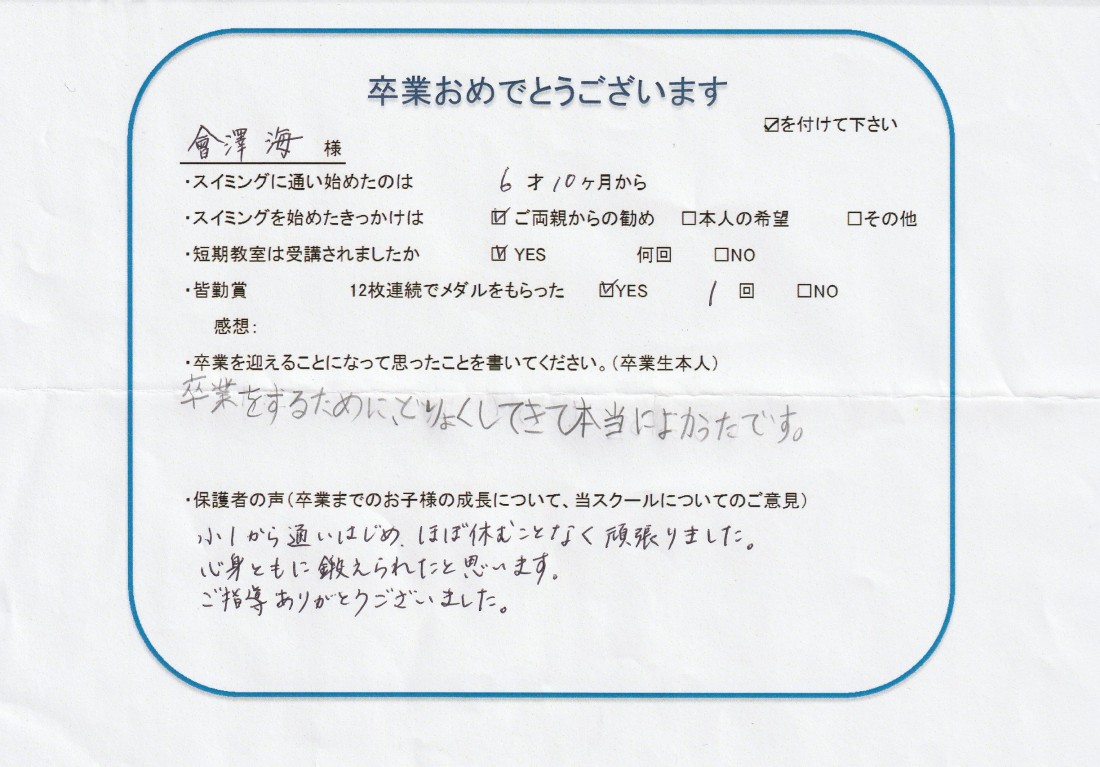 卒業おめでとうございます
☑を付けて下さい
會澤 海 様
・スイミングに通い始めたのは 6 才 10ヶ月から
・スイミングを始めたきっかけは ☑ご両親からの勧め □本人の希望 □その他
・短期教室は受講されましたか ☑YES 何回 □NO
・皆勤賞 12枚連続でメダルをもらった ☑YES 1 回 □NO
感想:
・卒業を迎えることになって思ったことを書いてください。(卒業生本人)
卒業をするために、どりょくしてきて本当によかったです。
・保護者の声(卒業までのお子様の成長について、当スクールについてのご意見)
小1から通いはじめ、ほぼ休むことなく頑張りました。
心身ともに鍛えられたと思います。
ご指導ありがとうございました。